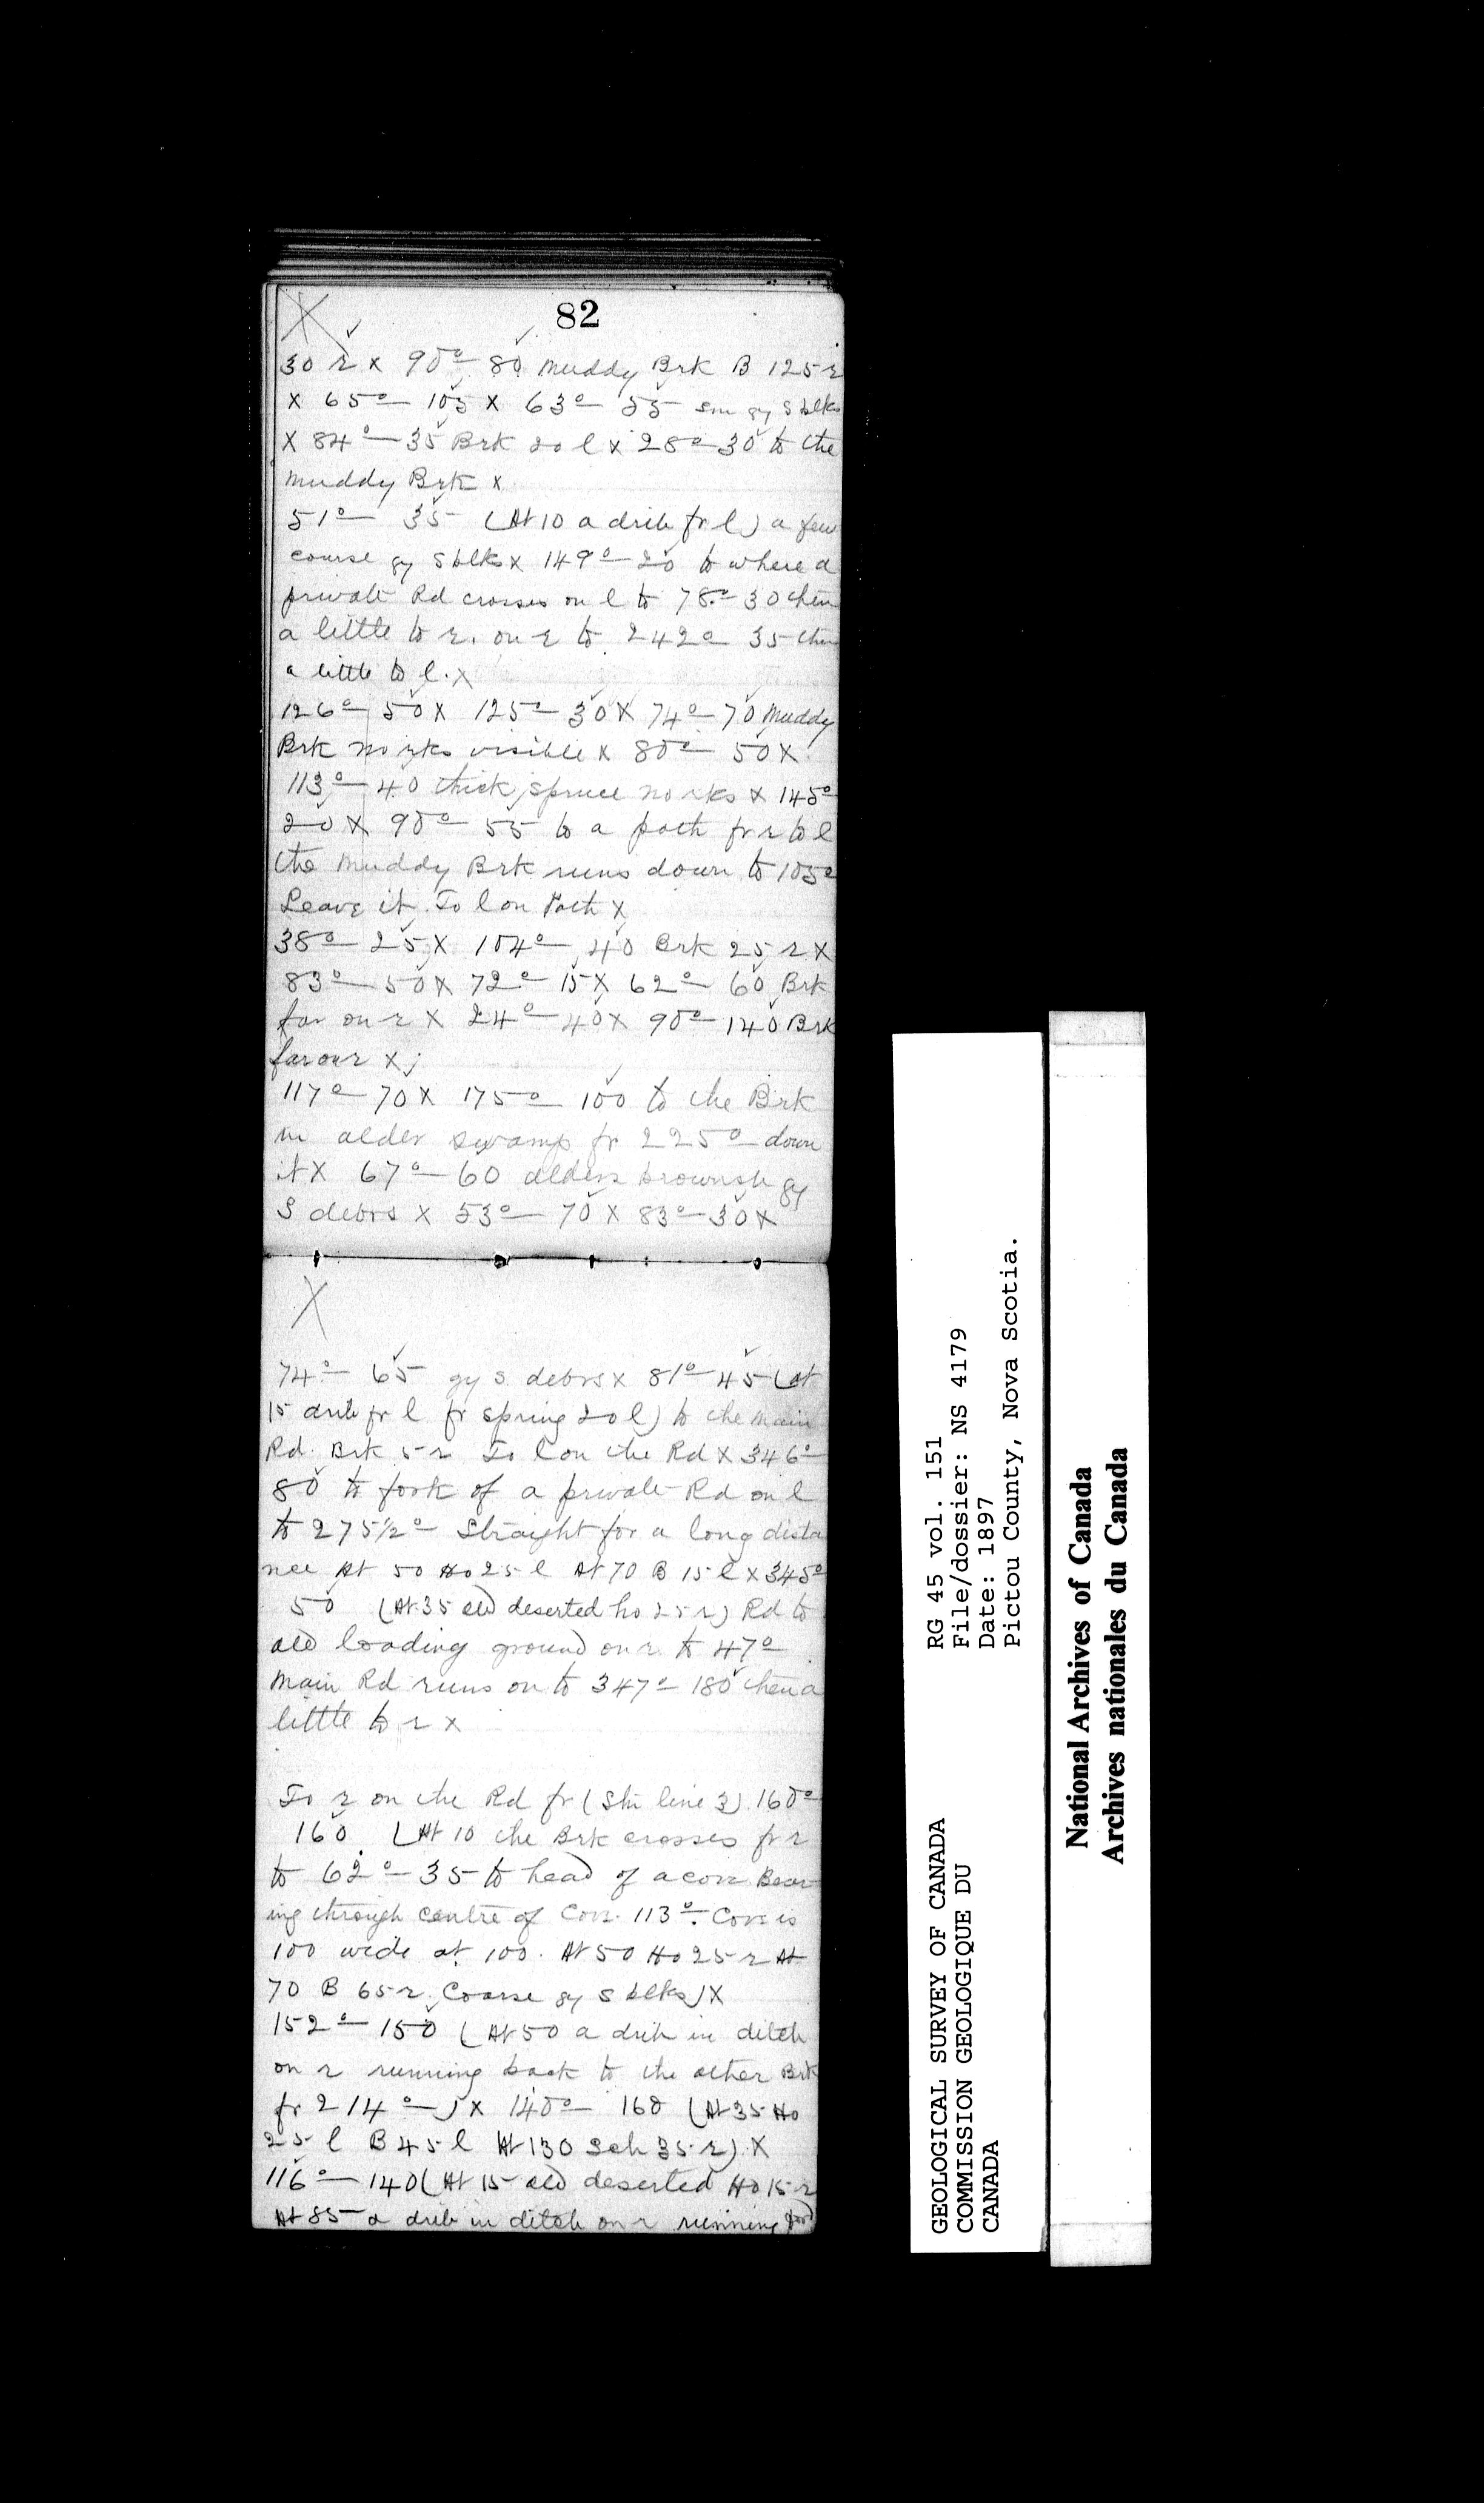 82
30 r x 90° 80 Muddy Brk B 125 r
x 65° 105 x 63° 55 sm gy S blks
x 84° 35 Brk 20 l x 28° 30 to the
muddy Brk x
51° 35 (At 10 a drib fr l) a few
course gy S blks x 149° 20 to where a
private Rd crosses on l to 78° 30 then
a little to r. on r to 242° 35 then
a little to l. x
126° 50 x 125° 30 x 74° 70 Muddy
Brk no rks visible x 80° 50 x
113° 40 thick spruce no rks x 145°
20 x 90° 55 to a path fr r to l
the Muddy Brk runs down to 105°
Leave it. To l on Path x
38° 25 x 104° 40 Brk 25 r x
83° 50 x 72° 15 x 62° 60 Brk
far on r x 24° 40 x 90° 140 Brk
far on r x
117° 70 x 175° 100 to the Brk
in alder swamp fr 225° down
it x 67° 60 alders brownish gy
S debrs x 53° 70 x 83° 30 x
X
74° 65 gy S debrs x 81° 45 (at
15 drib fr l fr spring 20 l) to the main
Rd. Brk 5 r To l on the Rd x 346°
80 to fork of a private Rd on l
to 275 1/2° Straight for a long dista
nce At 50 Ho 25 l At 70 B 15 l x 345°
50 (At 35 old deserted ho 25 r) Rd to
old loading ground on r to 47°
Main Rd runs on to 347° 180 then a
little to r x
To r on the Rd fr (Stn line 3) 160°
160 (At 10 the Brk crosses fr r
to 62° 35 to head of a cove Bear
ing through centre of Cove 113°. Cove is
100 wide at 100. At 50 Ho 25 r At
70 B 65 r. Coarse gy S blks) x
152° 150 (At 50 a drib in ditch
on r running back to the other Brk
fr 214°) x 140° 160 (At 35 Ho
25 l B 45 l At 130 Sch 35 r) x
116° 140 (At 15 old deserted Ho 15 r
At 85 a drib in ditch on r running
GEOLOGICAL SURVEY OF CANADA
COMMISSION GEOLOGIQUE DU
CANADA
RG 45 vol. 151
File/dossier: NS 4179
Date: 1897
Pictou County, Nova Scotia.
National Archives of Canada
Archives nationales du Canada